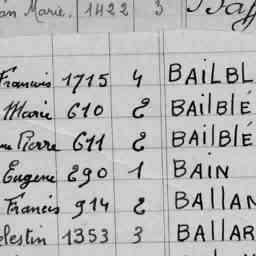 an Marie. 1422 3 Baff
Francois 1715 4 BAILBL
Marie 610 2 BAILBLÉ
Pierre 611 2 BAILBLÉ
Eugene 290 1 BAIN
Francis 914 2 BALLAN
elestin 1353 3 BALLAR